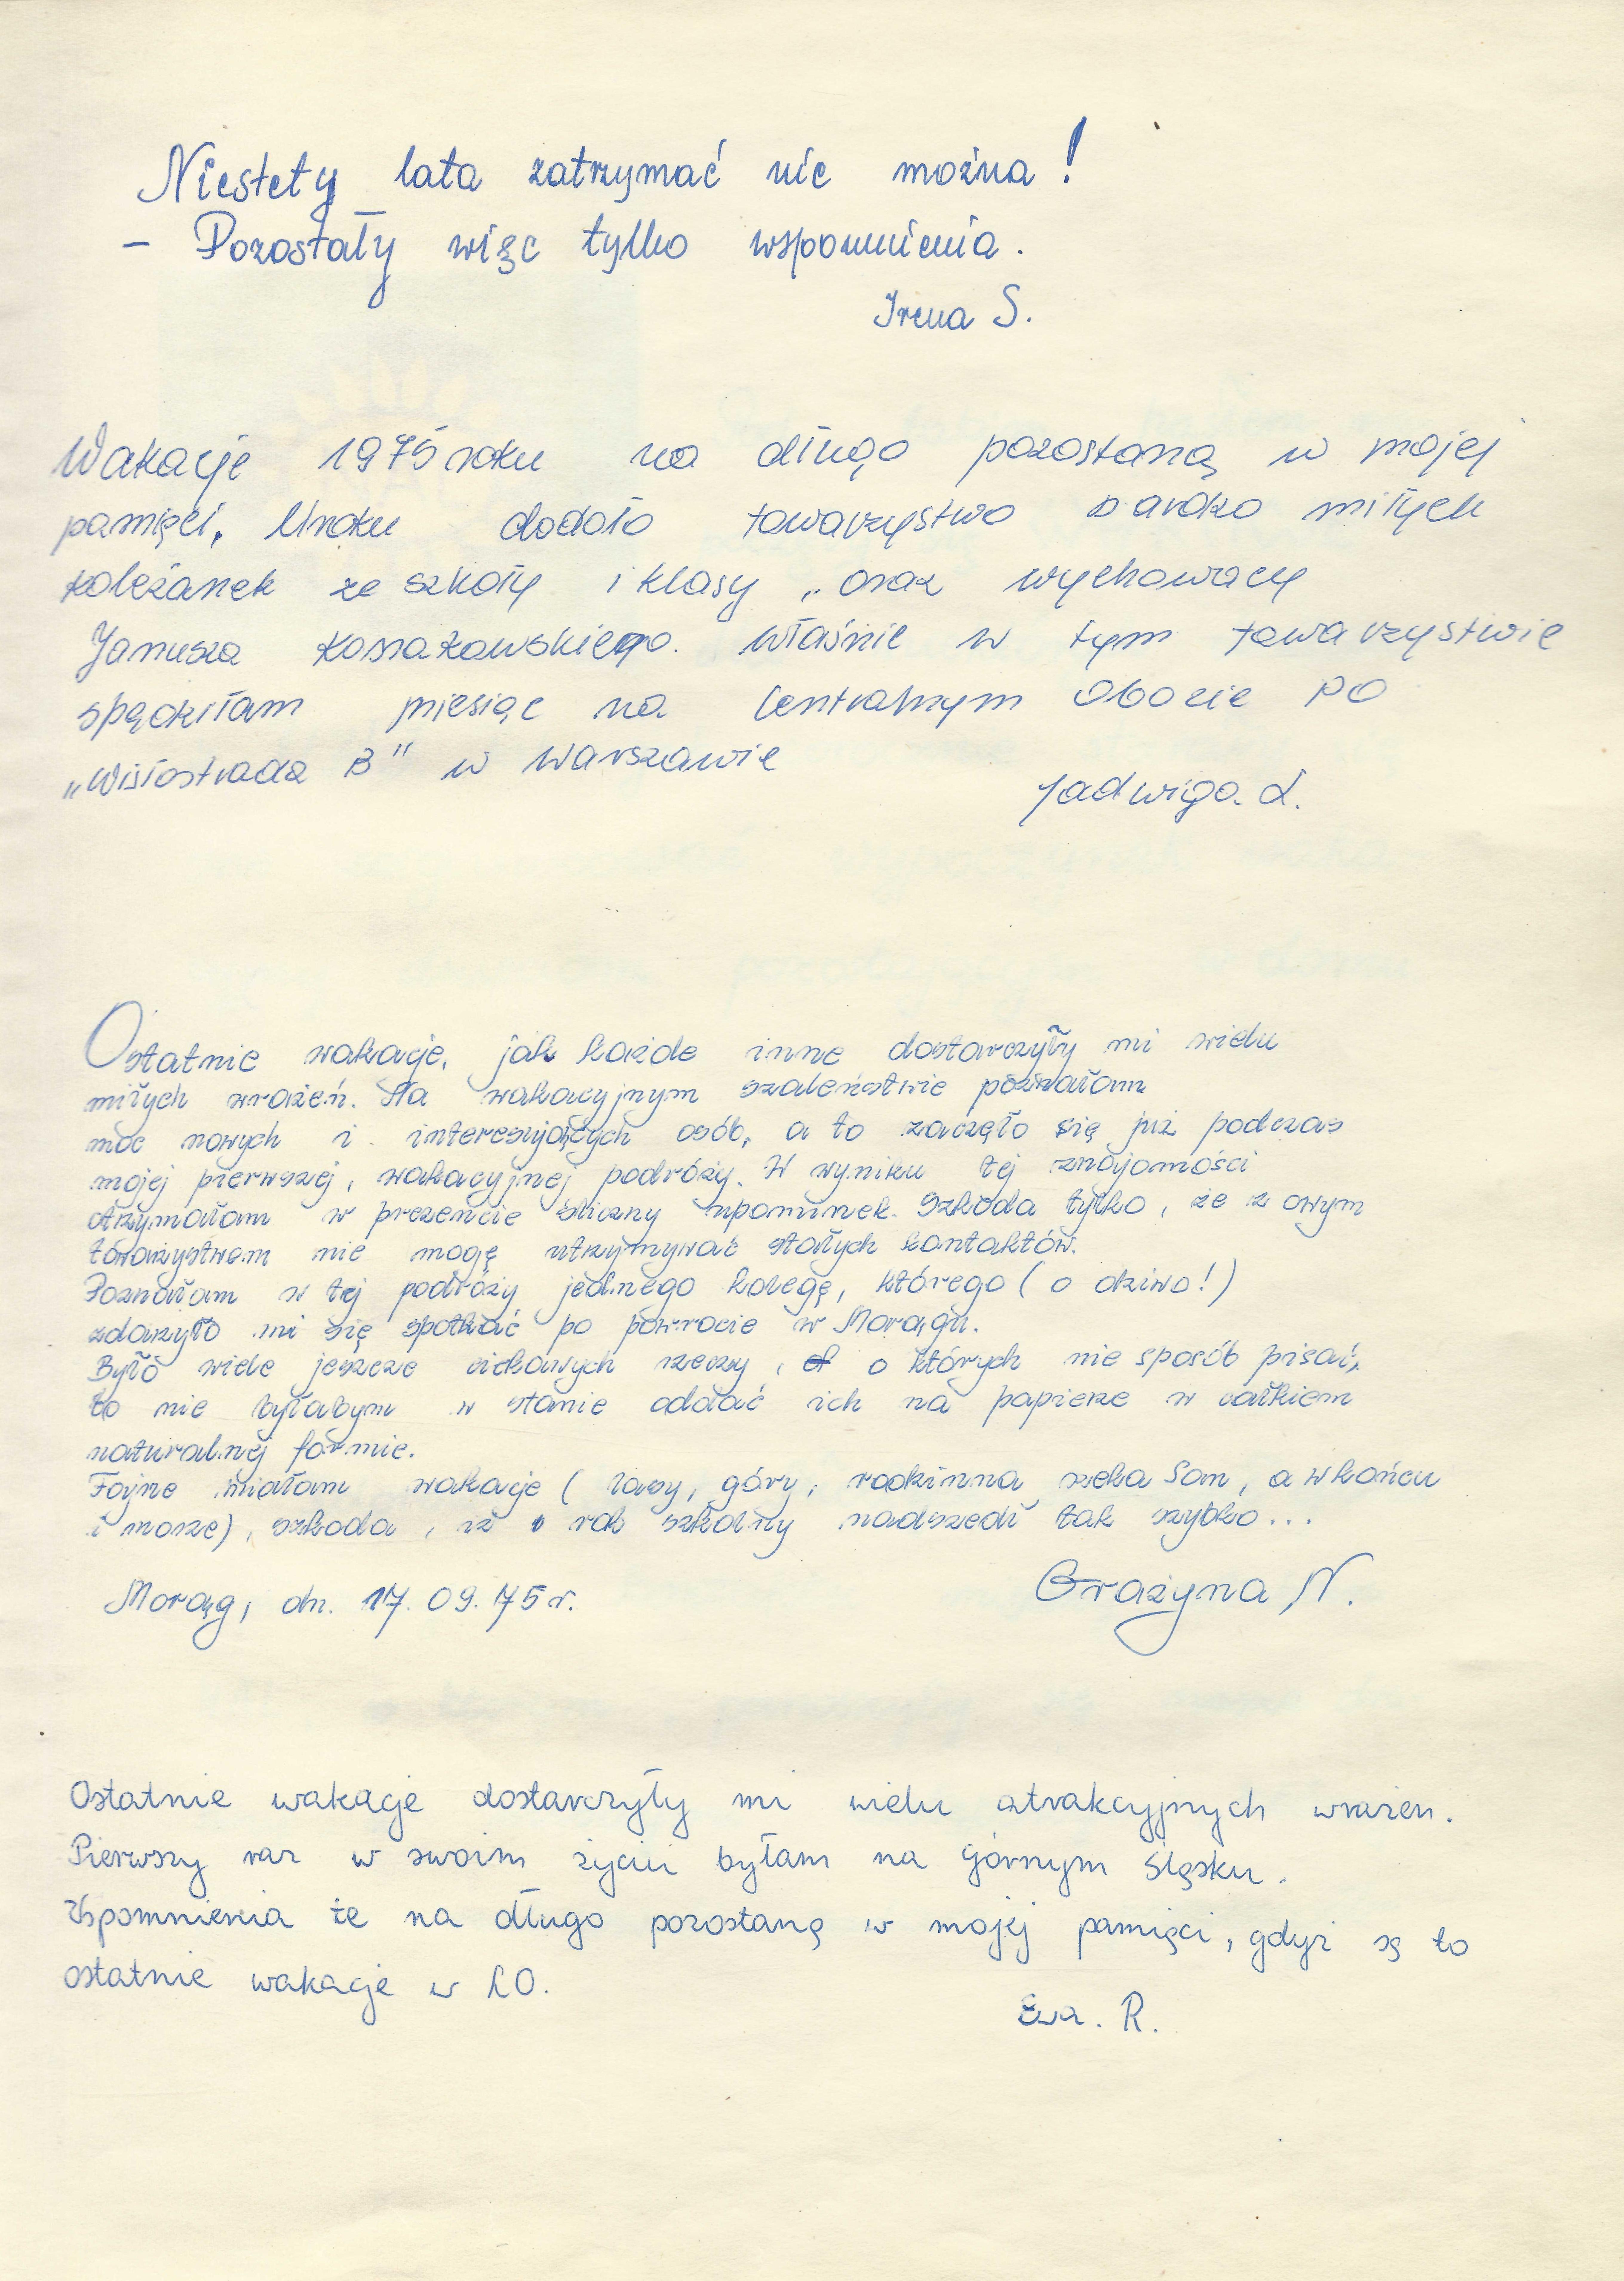 Niestety lata zatrzymać nie można!
- Pozostały więc tylko wspomnienia.
Irena S.
Wakacje 1975 roku na długo pozostaną w mojej
pamięci. Uroku dodało towarzystwo bardzo miłych
koleżanek ze szkoły i klasy „ oraz wychowawcy
Janusza Kossakowskiego. Właśnie w tym towarzystwie
spędziłam miesiąc na Centralnym Obozie PO
„Wisłostrada B" w Warszawie
Jadwiga. Ł.
Ostatnie wakacje, jak każde inne dostarczyły mi wielu
miłych wrażeń. Na wakacyjnym szaleństwie poznałam
moc nowych i interesujących osób, a to zaczęło się już podczas
mojej pierwszej, wakacyjnej podróży. W wyniku tej znajomości
otrzymałam w prezencie śliczny upominek. Szkoda tylko, że z owym
towarzystwem nie mogę utrzymywać stałych kontaktów.
Poznałam w tej podróży jednego kolegę, którego (o dziwo!)
zdarzyło mi się spotkać po powrocie w Morągu.
Było wiele jeszcze ciekawych rzeczy, o których nie sposób pisać,
bo nie byłabym w stanie oddać ich na papierze w całkiem
naturalnej formie.
Fajne miałam wakacje (lasy, góry, rodzinna rzeka San, a w końcu
i morze), szkoda, iż rok szkolny nadszedł tak szybko...
Morąg, dn. 17.09.75 r.
Grażyna N.
Ostatnie wakacje dostarczyły mi wielu atrakcyjnych wrażen.
Pierwszy raz w swoim życiu byłam na Górnym Śląsku.
Wspomnienia te na długo pozostaną w mojej pamięci, gdyż są to
ostatnie wakacje w LO.
Ewa. R.